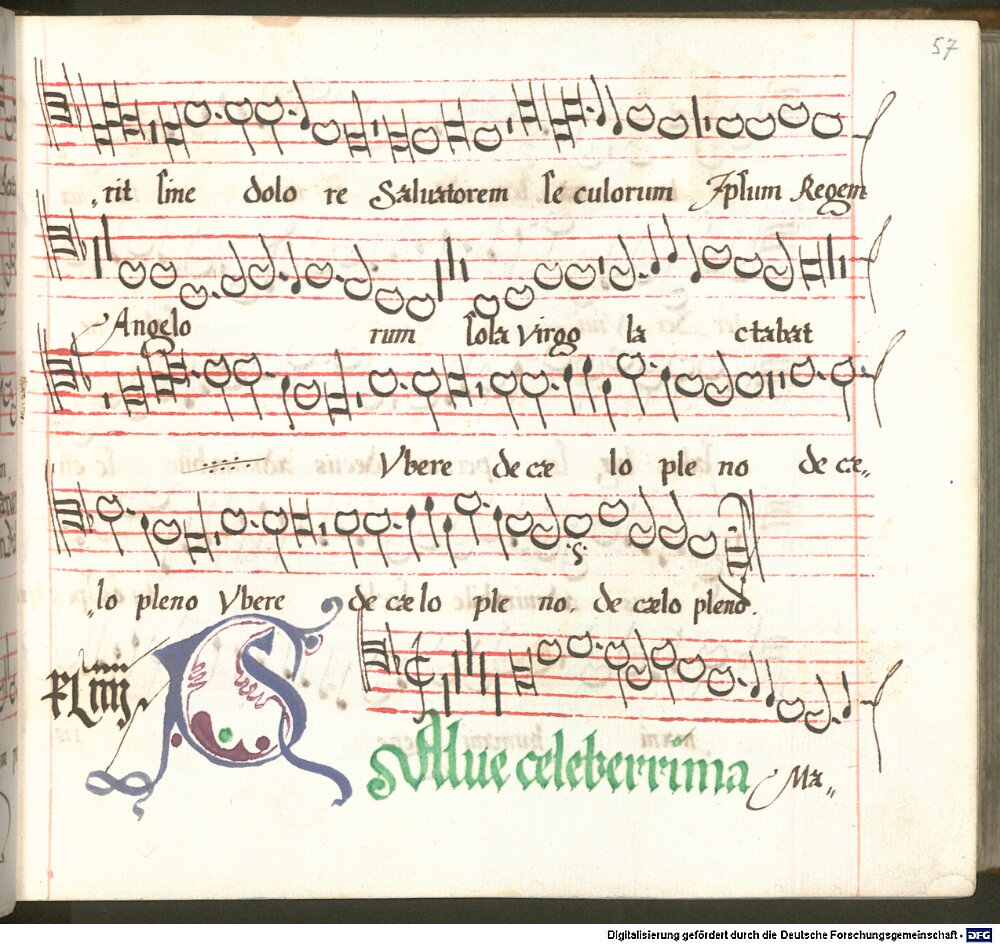 57
„rit sine dolo re Saluatorem se culorum Ipsum Regem
Angelo rum sola Virgo la ctabat
Vbere de cæ lo ple no de cæ„
„lo pleno Vbere de cælo ple no. de cælo pleno.
SAlue celeberrima Ma„
Digitalisierung gefördert durch die Deutsche Forschungsgemeinschaft - DFG